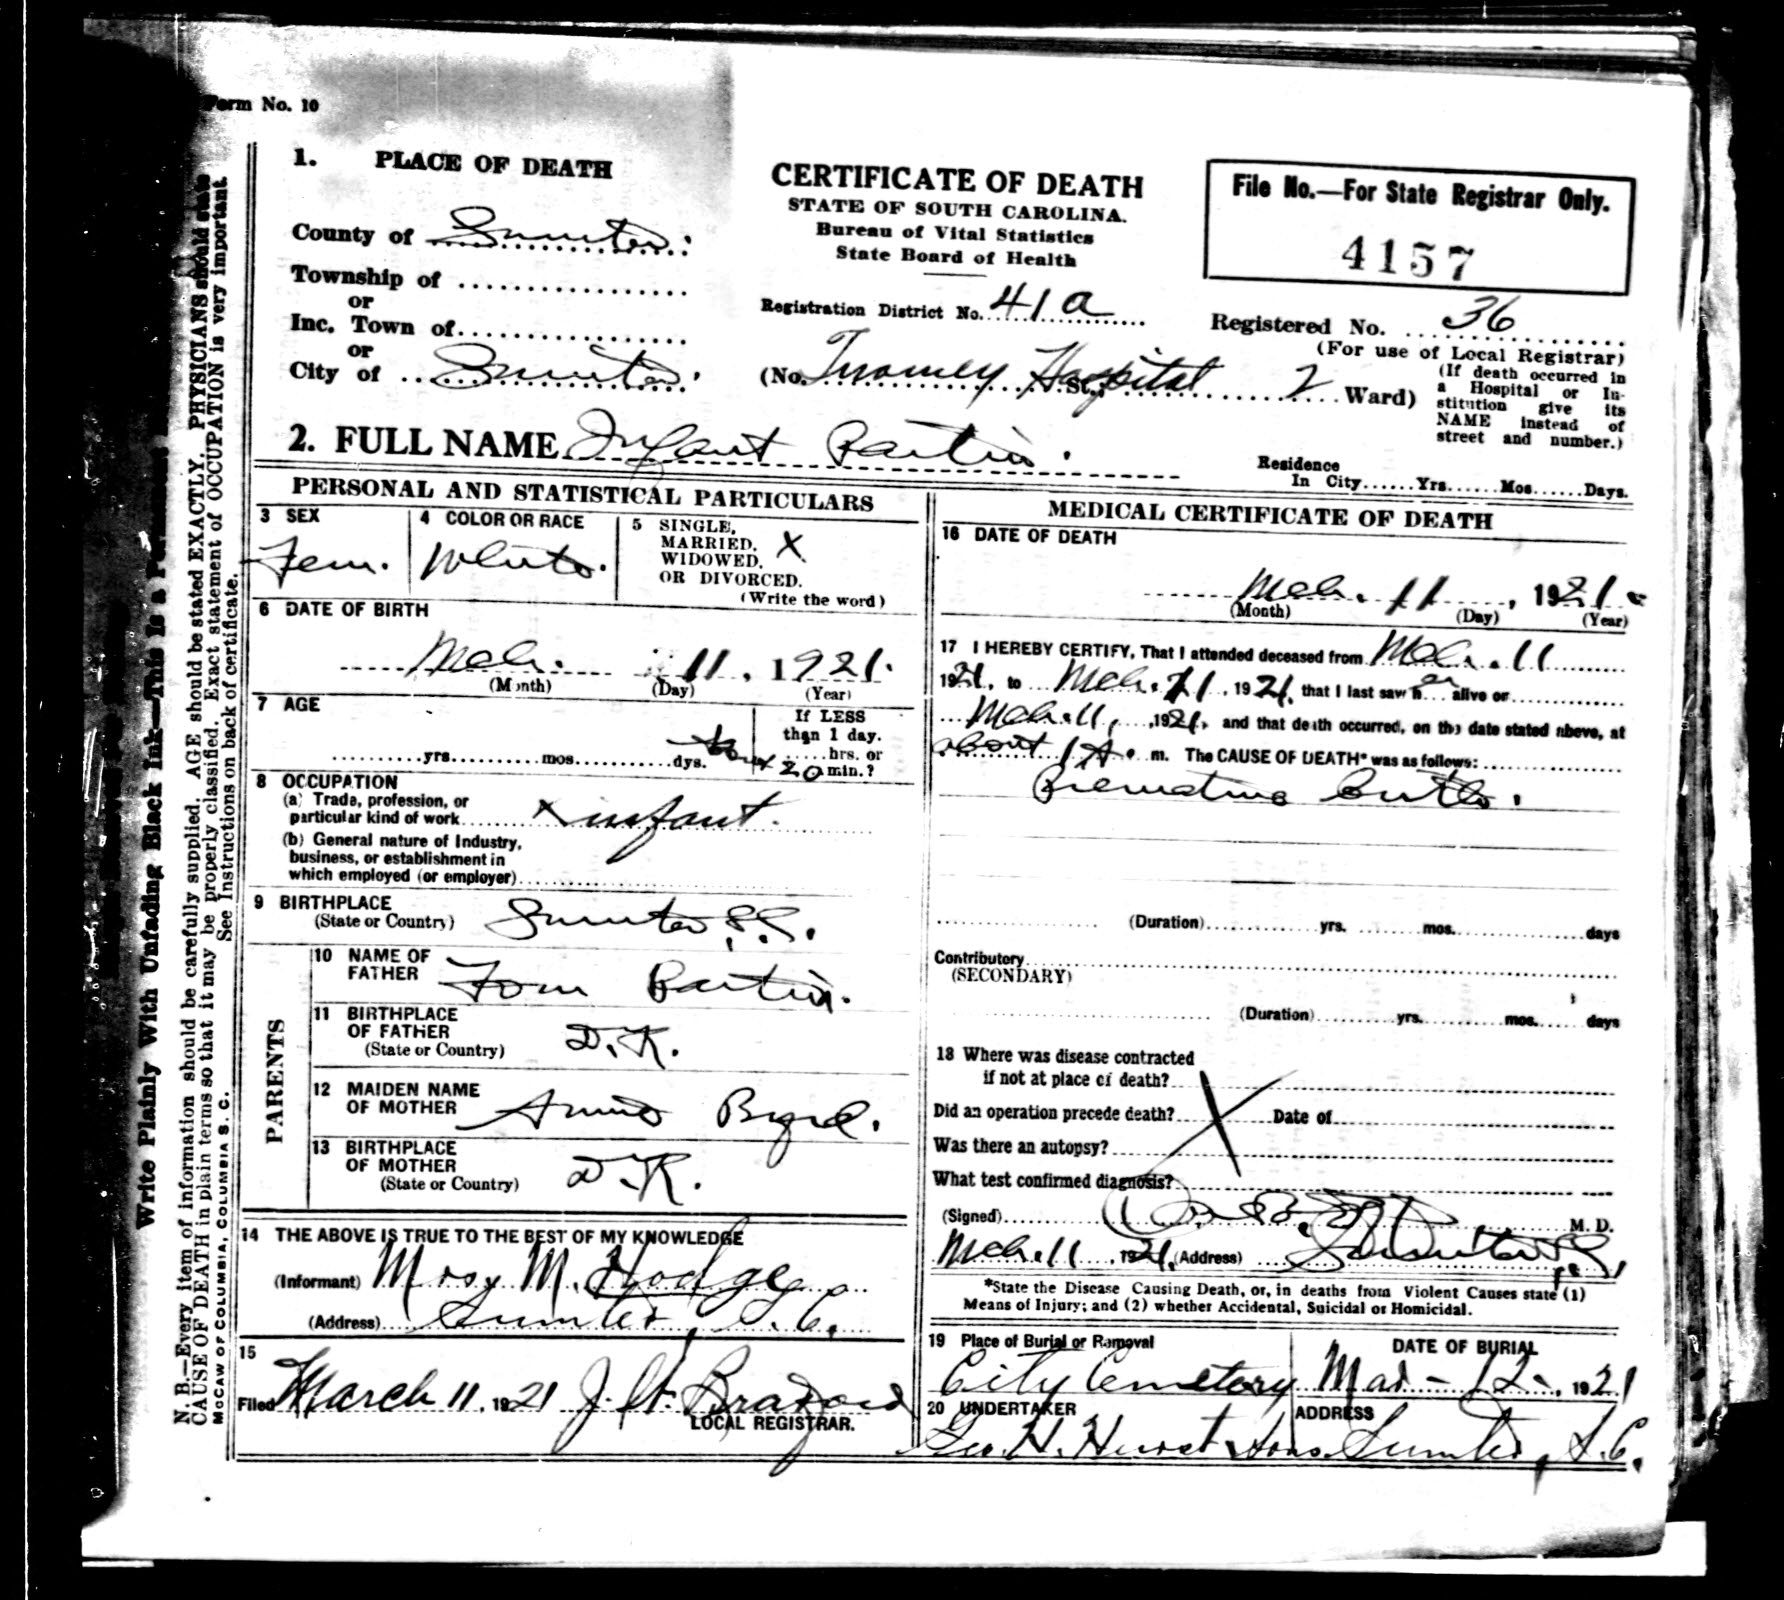 Form No. 10
1. PLACE OF DEATH
County of Sumter.
Township of
or
Inc. Town of
or
City of Sumter.
CERTIFICATE OF DEATH
STATE OF SOUTH CAROLINA.
Bureau of Vital Statistics
State Board of Health
Registration District No. 41a
File No.—For State Registrar Only.
4157
Registered No. 36
(For use of Local Registrar)
(No. Tuomey Hospital St.; 2 Ward)
(If death occurred in
a Hospital or In-
stitution give its
NAME instead of
street and number.)
2. FULL NAME Infant Partin.
Residence
In City......Yrs......Mos......Days.
PERSONAL AND STATISTICAL PARTICULARS
3 SEX
Fem.
4 COLOR OR RACE
White.
5 SINGLE,
MARRIED,
WIDOWED,
OR DIVORCED.
(Write the word)
X
6 DATE OF BIRTH
Mch. 11, 1921.
(Month) (Day) (Year)
7 AGE
yrs. mos. dys.
If LESS
than 1 day.
hrs. or
20 min.?
8 OCCUPATION
(a) Trade, profession, or
particular kind of work x infant.
(b) General nature of Industry,
business, or establishment in
which employed (or employer)
9 BIRTHPLACE
(State or Country) Sumter S.C.
PARENTS
10 NAME OF
FATHER Tom Partin.
11 BIRTHPLACE
OF FATHER
(State or Country) D.K.
12 MAIDEN NAME
OF MOTHER Annie Byrd.
13 BIRTHPLACE
OF MOTHER
(State or Country) D.K.
14 THE ABOVE IS TRUE TO THE BEST OF MY KNOWLEDGE
(Informant) M. Hodge
(Address) Sumter, S.C.
15
Filed March 11. 1921
LOCAL REGISTRAR.
MEDICAL CERTIFICATE OF DEATH
16 DATE OF DEATH
Mch. 11, 1921.
(Month) (Day) (Year)
17 I HEREBY CERTIFY, That I attended deceased from Mch. 11
1921, to Mch. 11, 1921, that I last saw her alive on
Mch. 11, 1921, and that death occurred, on the date stated above, at
about 1 A. m. The CAUSE OF DEATH* was as follows:
Premature birth.
(Duration) yrs. mos. days
Contributory
(SECONDARY)
(Duration) yrs. mos. days
18 Where was disease contracted
if not at place of death?
Did an operation precede death? Date of
Was there an autopsy?
What test confirmed diagnosis?
(Signed) M. D.
Mch. 11, 1921, (Address) Sumter S.C.
*State the Disease Causing Death, or, in deaths from Violent Causes state (1)
Means of Injury; and (2) whether Accidental, Suicidal or Homicidal.
19 Place of Burial or Removal
City Cemetery
DATE OF BURIAL
Mar - 12 -, 1921
20 UNDERTAKER
Geo. H. Hurst Sons.
ADDRESS
Sumter, S.C.
Write Plainly With Unfading Black Ink—This is a Permanent
N. B.—Every item of information should be carefully supplied. AGE should be stated EXACTLY. PHYSICIANS should state
CAUSE OF DEATH in plain terms so that it may be properly classified. Exact statement of OCCUPATION is very important.
See Instructions on back of certificate.
McCAW OF COLUMBIA, COLUMBIA S. C.